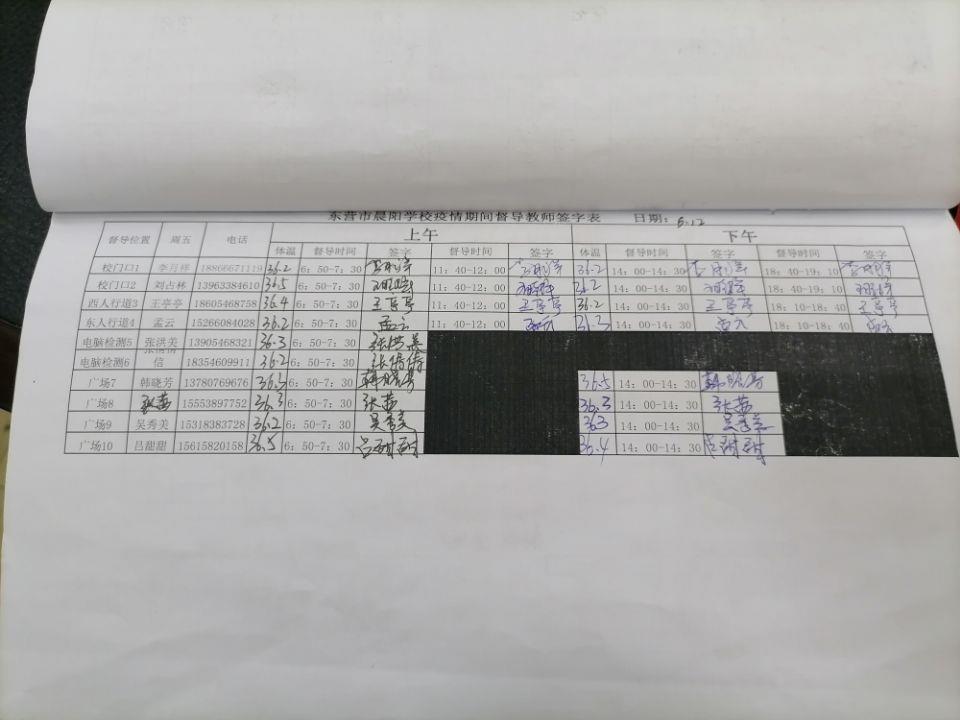 东营市晨阳学校疫情期间督导教师签字表 日期：5.12
督导位置 周五 电话 上午 下午
体温 督导时间 签字 督导时间 签字 体温 督导时间 签字 督导时间 签字
校门口1 李月祥 18866671119 36.2 6：50-7：30 11：40-12：00 36.2 14：00-14：30 18：40-19：10
校门口2 刘占林 13963384610 36.5 6：50-7：30 11：40-12：00 36.2 14：00-14：30 18：40-19：10
西人行道3 王亭亭 18605468758 36.4 6：50-7：30 王亭亭 11：40-12：00 王亭亭 36.2 14：00-14：30 王亭亭 18：10-18：40 王亭亭
东人行道4 孟云 15266084028 36.2 6：50-7：30 孟云 11：40-12：00 孟云 14：00-14：30 孟云 18：10-18：40 孟云
电脑检测5 张洪美 13905468321 36.3 6：50-7：30 张洪美
电脑检测6 信 18354609911 36.2 6：50-7：30 张倩倩
广场7 韩晓芳 13780769676 36.5 6：50-7：30 韩晓芳 36.5 14：00-14：30 韩晓芳
广场8 张茜 15553897752 36.3 6：50-7：30 张茜 36.3 14：00-14：30 张茜
广场9 吴秀美 15318383728 36.2 6：50-7：30 吴秀美 363 14：00-14：30 吴秀美
广场10 吕甜甜 15615820158 36.5 6：50-7：30 吕甜甜 36.4 14：00-14：30 吕甜甜